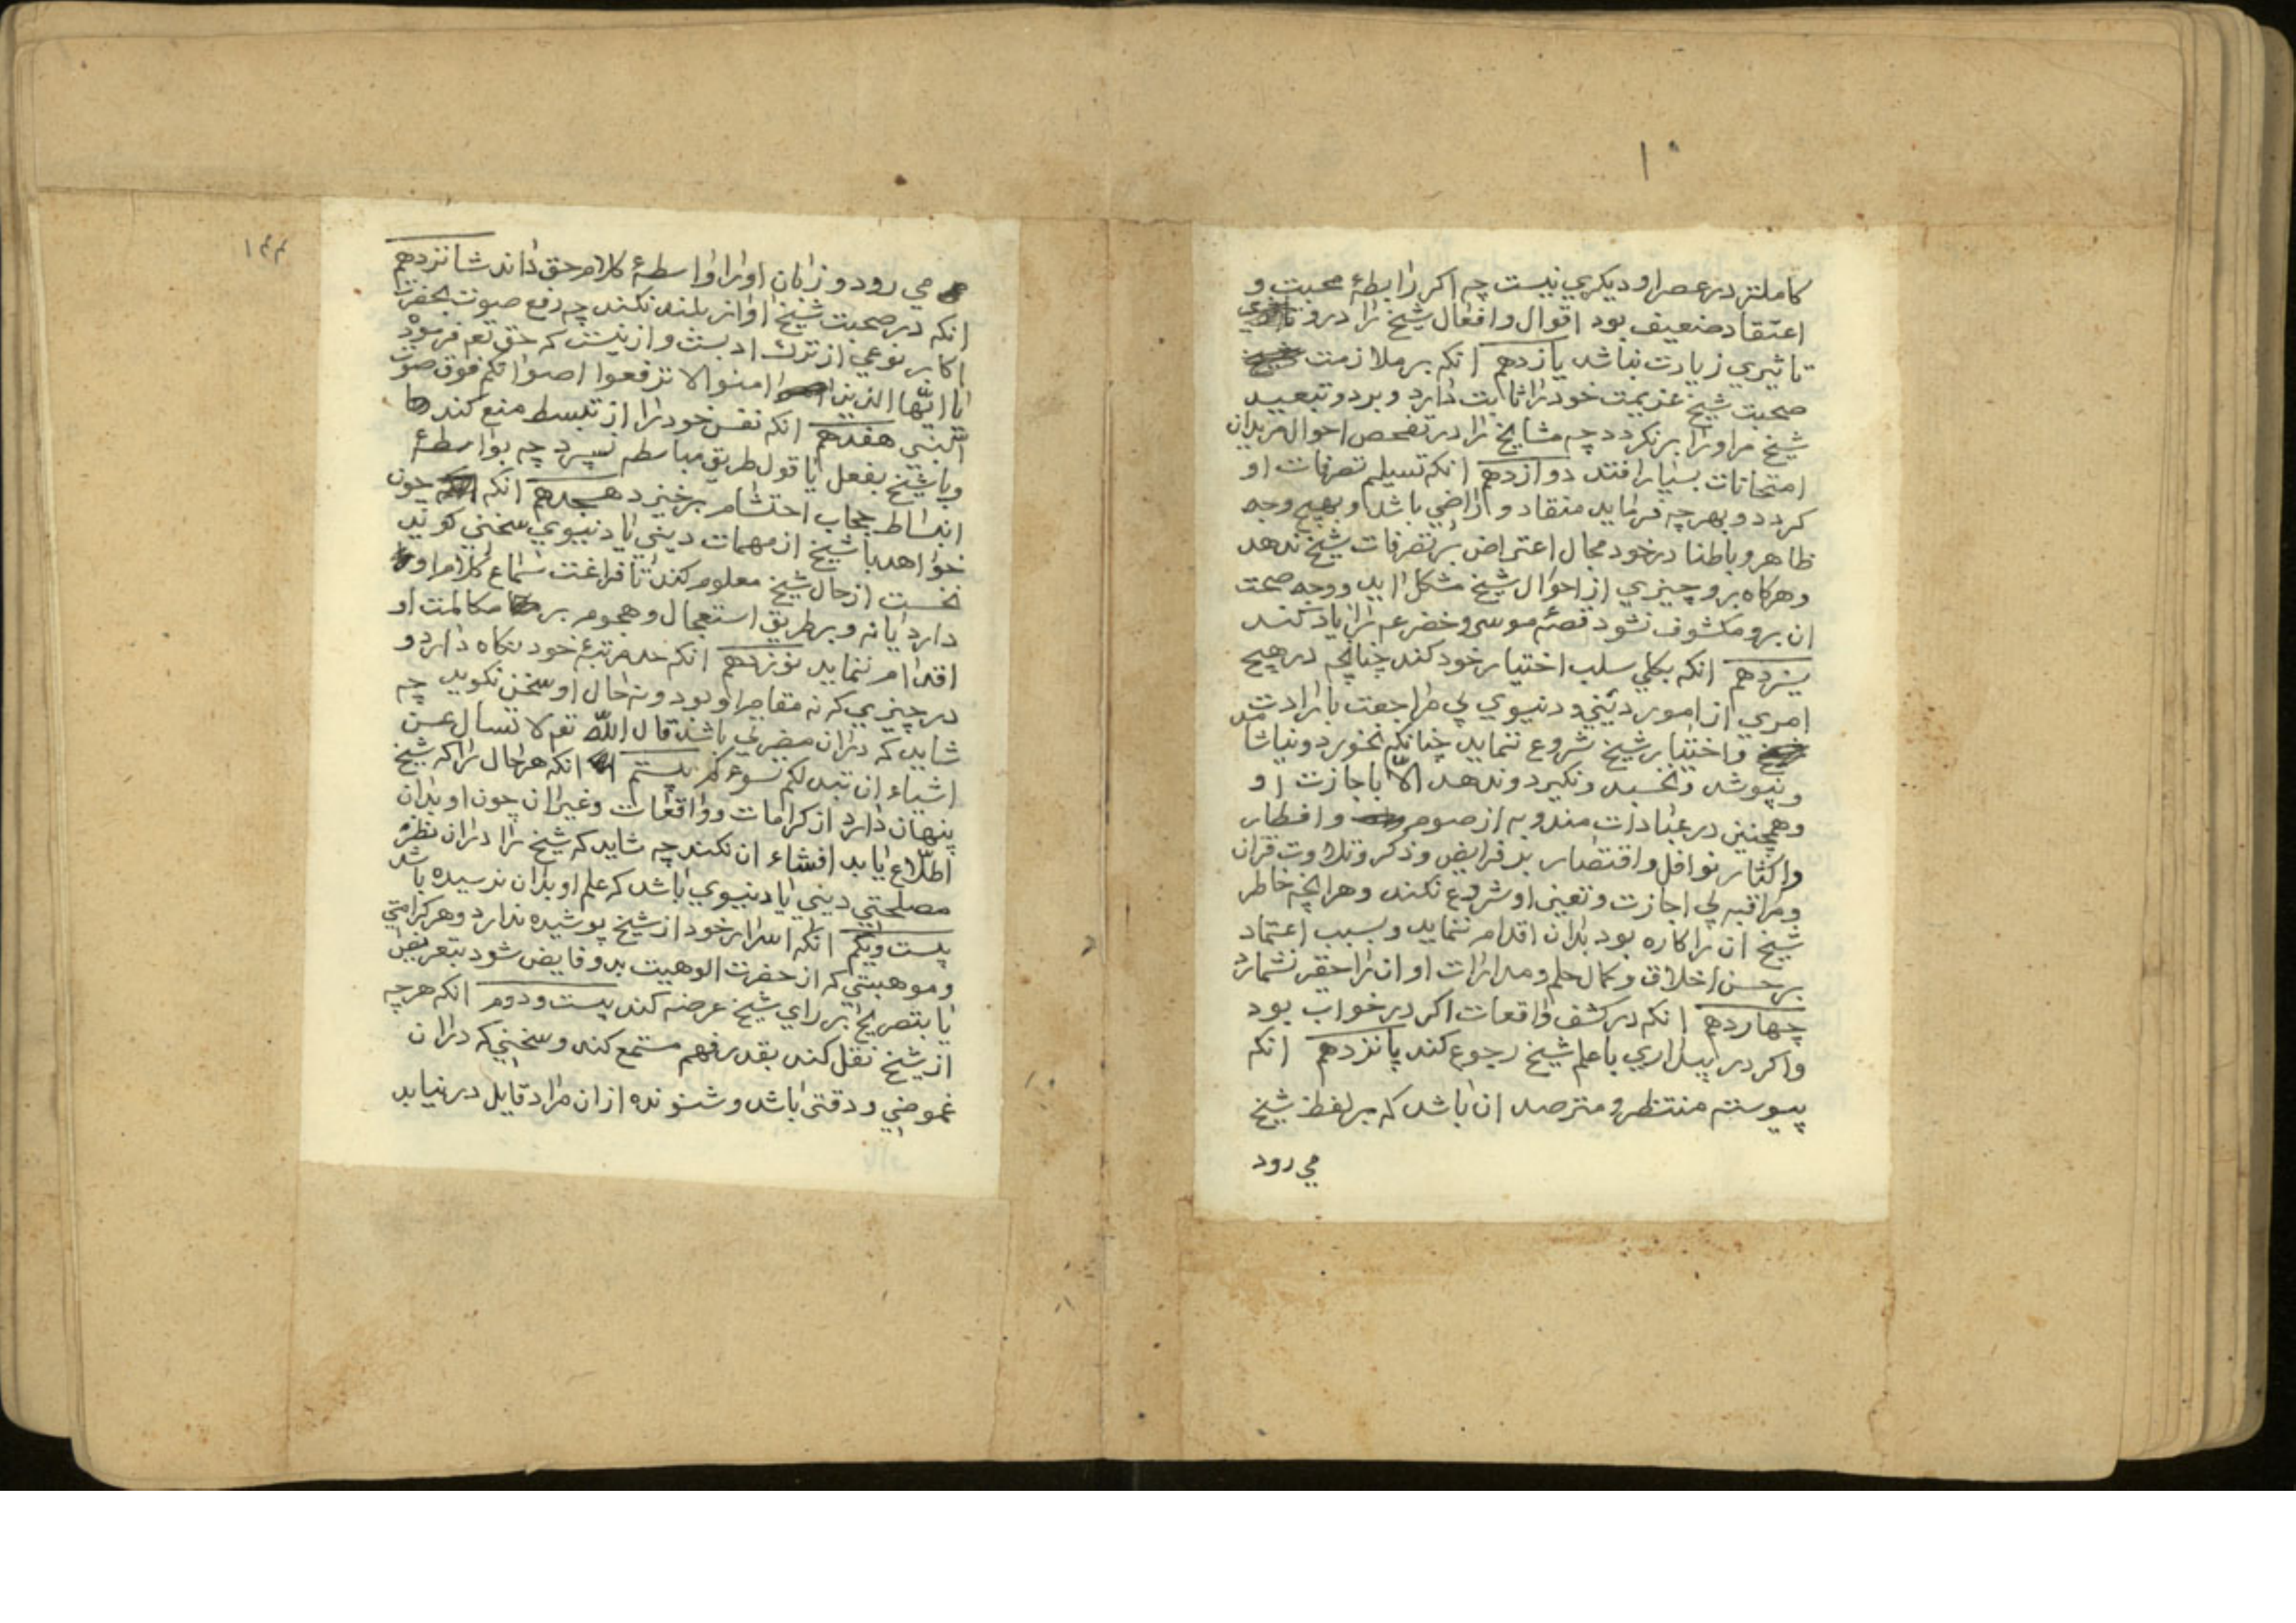 ۱۰
کاملتر در عصر او دیکری نیست چه اکر رابطهٔ محبت و
اعتقاد ضعیف بود اقوال و افعال شیخ را درو
تاثیری زیادت نباشد یازدهم انکه بر ملازمت
صحبت شیخ عزیمت خود را ثابت دارد و برد و تبعید
شیخ مر او را برنکردد چه مشایخ را در تفحص احوال مریدان
امتحانات بسیار افتد دوازدهم انکه تسیلم تصرفات او
کردد و بهر چه فرماید منقاد و راضی باشد و بهیچ وجه
ظاهر و باطنا در خود مجال اعتراض بر تصرفات شیخ ندهد
و هرکاه برو چیزی از احوال شیخ مشکل اید و وجه صحت
ان برو مکشوف نشود قصهٔ موسی و خضر عم را یاد کند
سیزدهم انکه بکلی سلب اختیار خود کند چنانچه در هیچ
امری از امور دینی و دنیوی بی مراجعت با رادت
و اختیار شیخ شروع ننماید چنانکه نخورد و نیاشامد
و نپوشد و نخسبد و نکیرد و ندهد الّا باجازت او
و همچنین در عبادات مندوبه از صوم و افطار
و اکثار نوافل و اقتصار بر فرایض و ذکر و تلاوت قران
و مراقبه بی اجازت و تعین او شروع نکند و هر انچه خاطر
شیخ ان را کاره بود بدان اقدام ننماید و بسبب اعتماد
بر حسن اخلاق و کمال حلم و مدارات او ان را حقیر نشمارد
چهاردهم انکه در کشف واقعات اکر در خواب بود
و اکر در بیداری با علم شیخ رجوع کند پانزدهم انکه
پیوسته منتظر و مترصد ان باشد که بر لفظ شیخ
می رود
۱۴۴
می رود و زبان او را واسطهٔ کلام حق داند شانزدهم
انکه در صحبت شیخ اواز بلند نکند چه رفع صوت بحضرت
اکابر نوعی از ترک ادبست و از نیست که حق تع فرمود
یا ایّها الذین امنوا لا ترفعوا اصواتکم فوق صوت
النبی هفدهم انکه نفس خود را از تبسط منع کند
و با شیخ بفعل یا قول طریق مباسطه نسپرد چه بواسطهٔ
انبساط حجاب احتشام برخیزد هجدهم انکه چون
خواهد با شیخ از مهمات دینی یا دنیوی سخنی کوید
نخست از حال شیخ معلوم کند تا فراغت سماع کلام او
دارد یا نه و بر طریق استعجال و هجوم بر مکالمت او
اقدام ننماید نوزدهم انکه حد مرتبهٔ خود نکاه دارد و
در چیزی که نه مقام او بود و نه حال او سخن نکوید چه
شاید که دران مضرتی باشد قال اللّه تع لا تسأل عن
اشیاء ان تبد لکم تسوءکم بیستم انکه هر حال را که شیخ
پنهان دارد از کرامات و واقعات و غیر ان چون او بدان
اطلاع یابد افشاء ان نکند چه شاید که شیخ را دران نظر
مصلحتی دینی یا دنیوی باشد که علم او بدان نرسیده باشد
بیست و یکم انکه اسرار خود از شیخ پوشیده ندارد و هر کرامتی
و موهبتی که از حضرت الوهیت بدو فایض شود بتعریض
یا بتصریح بر رای شیخ عرضه کند بیست و دوم انکه هر چه
از شیخ نقل کند بقدر فهم مستمع کند و سخنی که دران
غموضی و دقتی باشد و شنونده از ان مراد قایل در نیابد